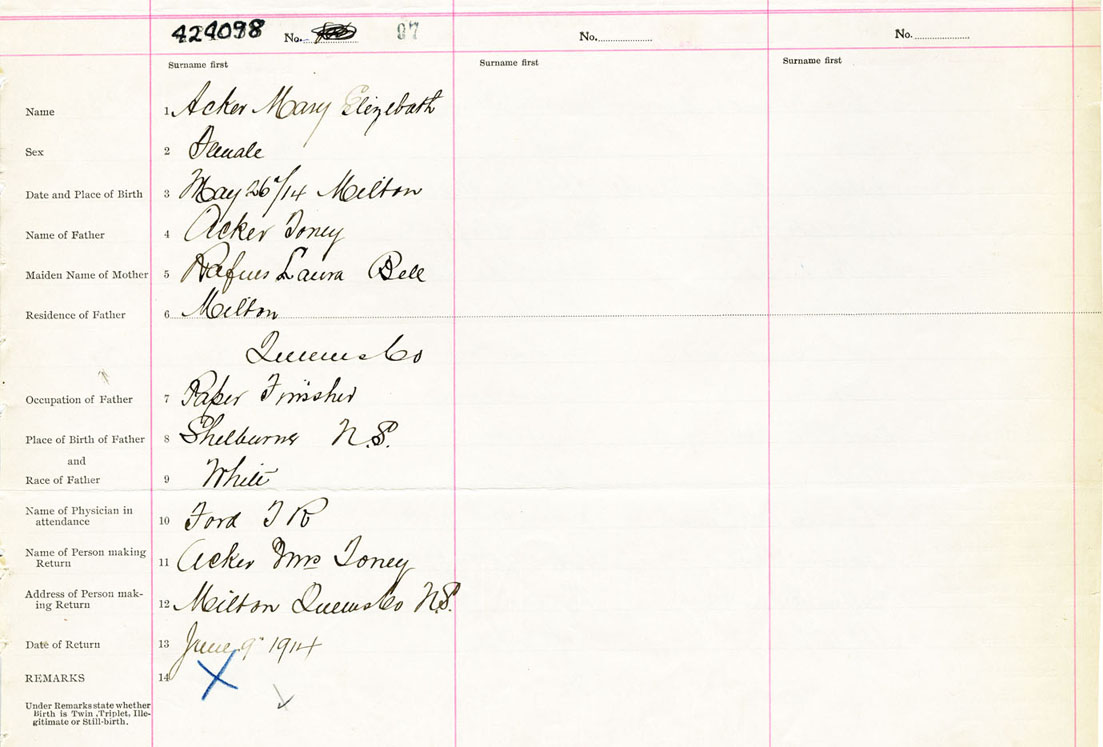 424098 No. 97 No. No.
Surname first Surname first Surname first
Name 1 Acker Mary Elizebath
Sex 2 Female
Date and Place of Birth 3 May 26"/14 Milton
Name of Father 4 Acker Toney
Maiden Name of Mother 5 Rafus Laura Bell
Residence of Father 6 Milton
Queens Co
Occupation of Father 7 Paper Finisher
Place of Birth of Father 8 Shelburne N.S.
and
Race of Father 9 White
Name of Physician in
attendance 10 Ford T R
Name of Person making
Return 11 Acker Mrs Toney
Address of Person mak-
ing Return 12 Milton Queens Co N.S.
Date of Return 13 June 9" 1914
REMARKS 14
Under Remarks state whether
Birth is Twin, Triplet, Ille-
gitimate or Still-birth.